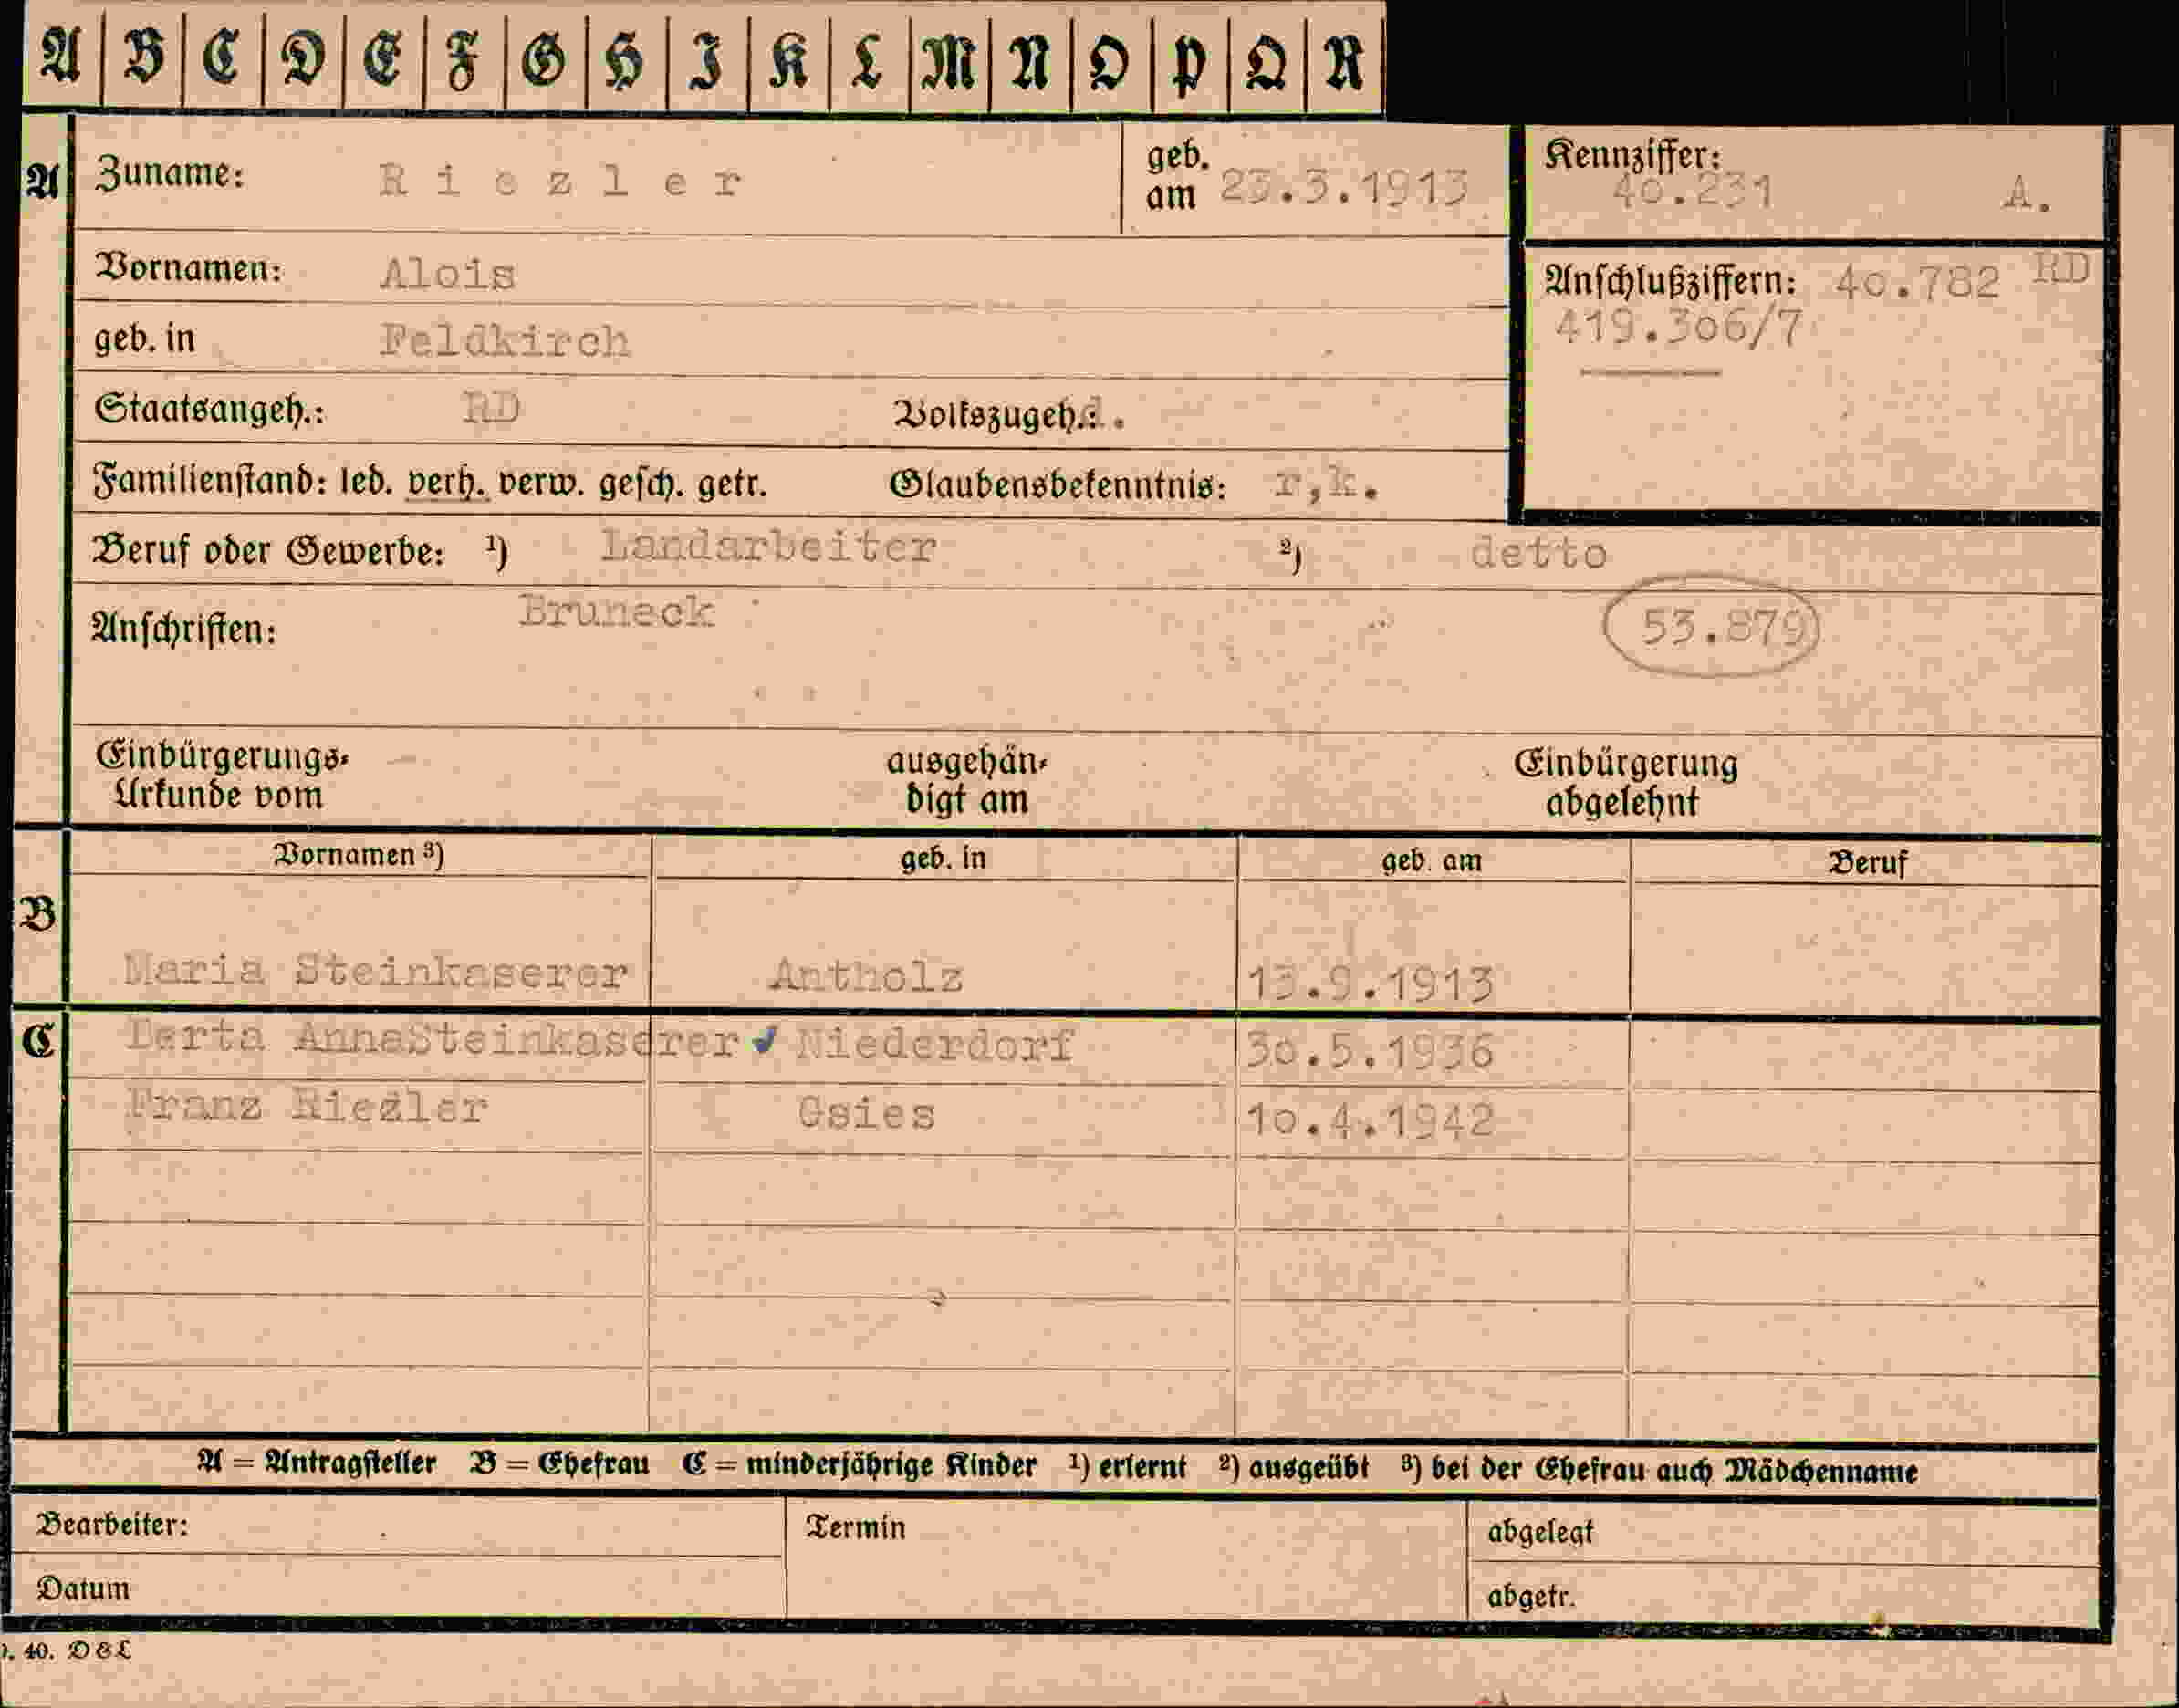 A B C D E F G H I K L M N O P Q R
A Zuname: Riezler geb. am 23.3.1913 Kennziffer: 40.231 A.
Vornamen: Alois Anschlußziffern: 40.782 RD
419.306/7
geb. in Feldkirch
Staatsangeh.: RD Volkszugeh.: d.
Familienstand: led. verh. verw. gesch. getr. Glaubensbekenntnis: r,k.
Beruf oder Gewerbe: ¹) Landarbeiter ²) detto
Anschriften: Bruneck 53.879
Einbürgerungs- ausgehän- Einbürgerung
Urkunde vom digt am abgelehnt
Vornamen ³) geb. in geb. am Beruf
B
Maria Steinkaserer Antholz 13.9.1913
C Berta AnnaSteinkaserer Niederdorf 30.5.1936
Franz Riezler Gsies 10.4.1942
A = Antragsteller B = Ehefrau C = minderjährige Kinder ¹) erlernt ²) ausgeübt ³) bei der Ehefrau auch Mädchenname
Bearbeiter: Termin abgelegt
Datum abgetr.
40. D & L